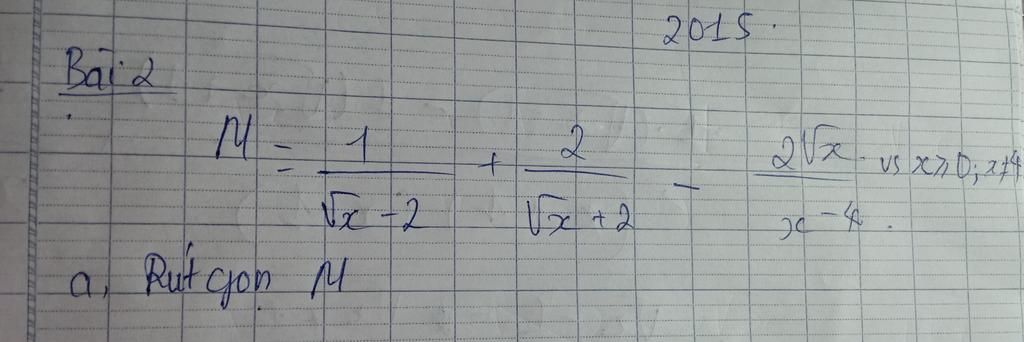 2015.
Bài 2
M = 1/(√x - 2) + 2/(√x + 2) - 2√x/(x - 4) vs x ≥ 0; x ≠ 4
a, Rút gọn M